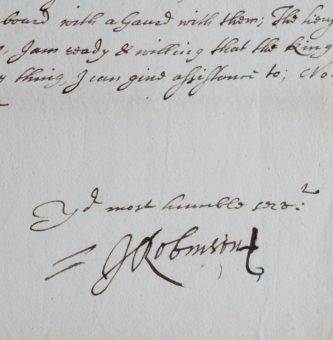 board with a Gaurd with them; The keys
I am ready & willing that the King
thing, I can give assistance to; No
Yr most humble serv.t
JRobinson